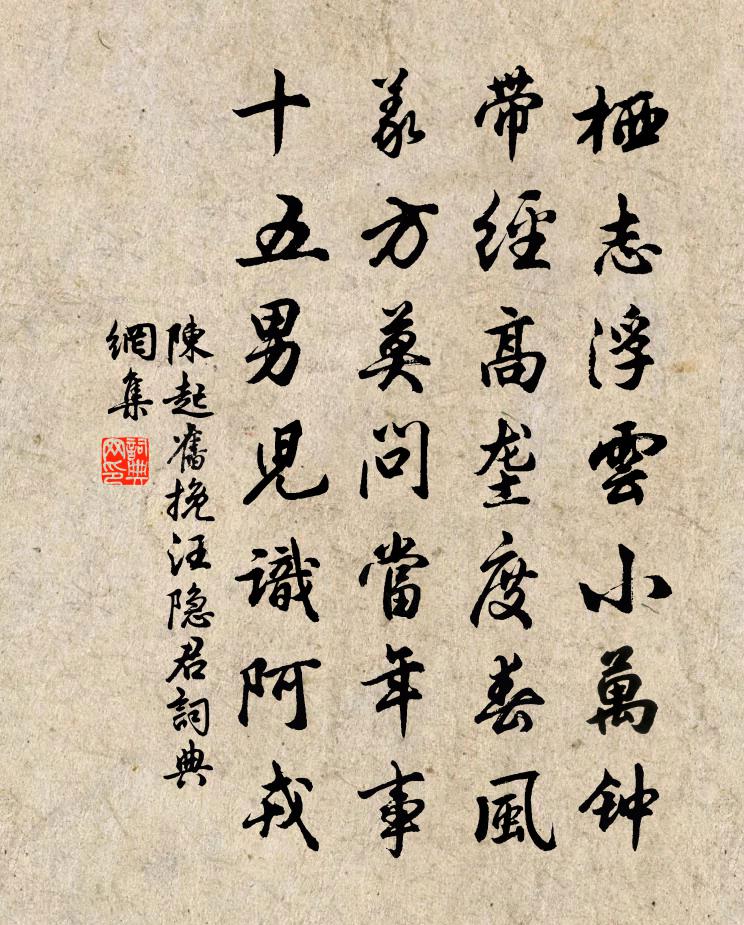 栖志浮雲小萬钟
帶經高垄度春風
義方莫問當年事
十五男児識阿戎
陳起舊挽汪隐君詞典
網集
詞典网印